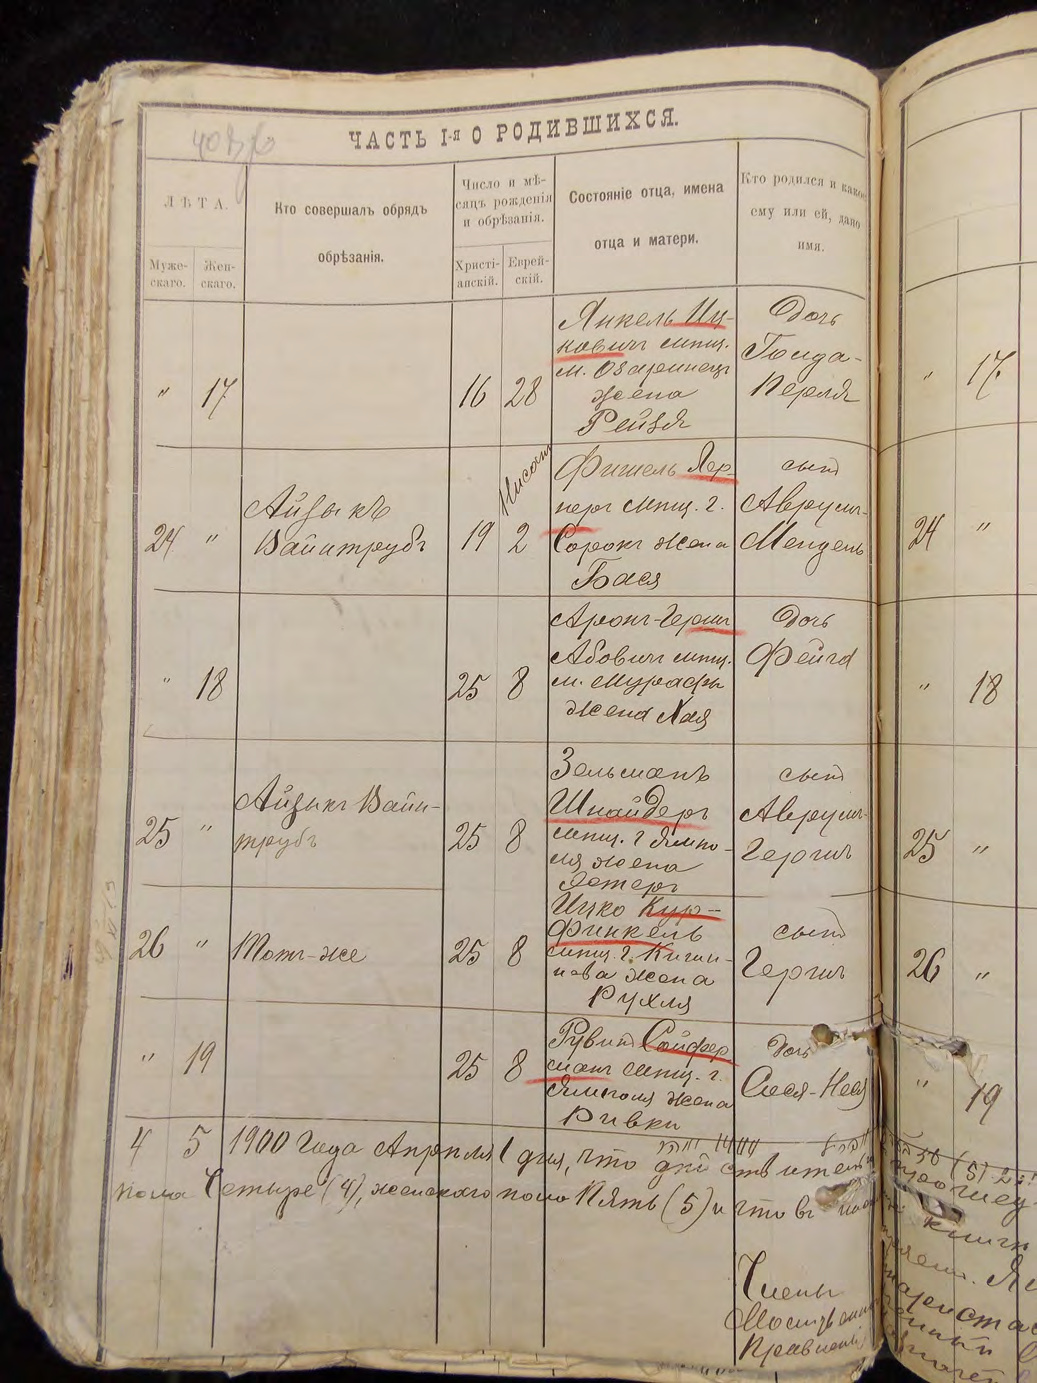 ЧАСТЬ I-я О РОДИВШИХСЯ.
ЛѢТА.
Муже-
скаго.
Жен-
скаго.
Кто совершалъ обрядъ
обрѣзанія.
Число и мѣ-
сяцъ рожденія
и обрѣзанія.
Христі-
анскій.
Еврей-
скій.
Состояніе отца, имена
отца и матери.
Кто родился и какое
ему или ей, дано
имя.
" 17 16 28
Янкель Иц-
ковичъ мѣщ.
м. Озаринецъ
жена
Рейзя
Дочь
Голда-
Перля
" 17
24 "
Айзыкъ
Вайнтрубъ
19
Нисонъ
2
Фишель Лер-
неръ мѣщ. г.
Сорокъ жена
Бася
сынъ
Аврумъ-
Мендель
24 "
" 18 25 8
Аронъ-Гершъ
Абовичъ мѣщ.
м. Мурафы
жена Хая
Дочь
Фейга
" 18
25 "
Айзыкъ Вайн-
трубъ
25 8
Зельманъ
Шнайдеръ
мѣщ. г Ямпо-
ля жена
Эстеръ
сынъ
Аврумъ-
Гершъ
25 "
26 "
Тотъ-же
25 8
Ицко Кур-
финкель
мѣщ. г. Киши-
нева жена
Рухля
сынъ
Гершъ
26 "
" 19 25 8
Рувинъ Сойфер
манъ мѣщ. г.
Ямполя жена
Ривка
Дочь
Сося-Неся
" 19
4 5 1900 года Апрѣля 1 дня, что
пола Четыре (4), женскаго пола Пять (5) и что въ
книги
Члены
Правленія